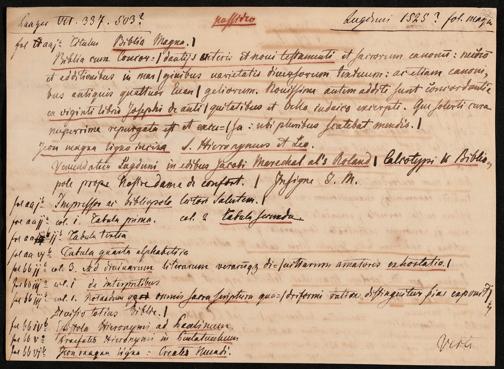 Panzer VII. 337. 503?
possideo
Lugduni 1523? fol. magn.
fol aajr Titulus Biblia Magna. |
Biblia cum concor= | dantijs veteris et novi testamenti et sacrorum canonum: necnon
et additionibus in mar | ginibus varietatis diversorum textuum: ac etiam canoni,
bus antiquis quattuor evan | geliorum. Novissime autem additi sunt concordantie
ex viginti libris Josephi de anti | quitatibus et bello iudaico excerpti. Que solerti cura
nuperrime repurgata est et = | sa: ubi pluribus scatebat mendis. |
Icon magna ligno incisa S. Hieronymus et Leo.
Venundatur Lugduni in edibus Jacobi Mareschal al's Roland | Calcotypi & Biblio,
pole prope Nostre dame de confort. | Insigne I. M.
fol aaj Impressor ac bibliopole lectori Salutem. |
fol aaij col. 1. Tabula prima. col. 2 tabula secunda
Tabula tertia
fol aa vj Tabula quarta alphabetica
fol bb ij col. 3. Ad divinarum literarum verarumque di= | vitiarum amatores exhortatio. |
col. 1 de interpretibus
col. 1. omnis sacra scriptura qua= | driformi ratione distinguitur
Divisio totius Biblie. |
fol bb iv Epistola Hieronymi ad Paulinum
fol bb v Praefatio Hieronymi in Pentateuchum
fol bb vj Icon magna lignea: Creatio Mundi.
Verte